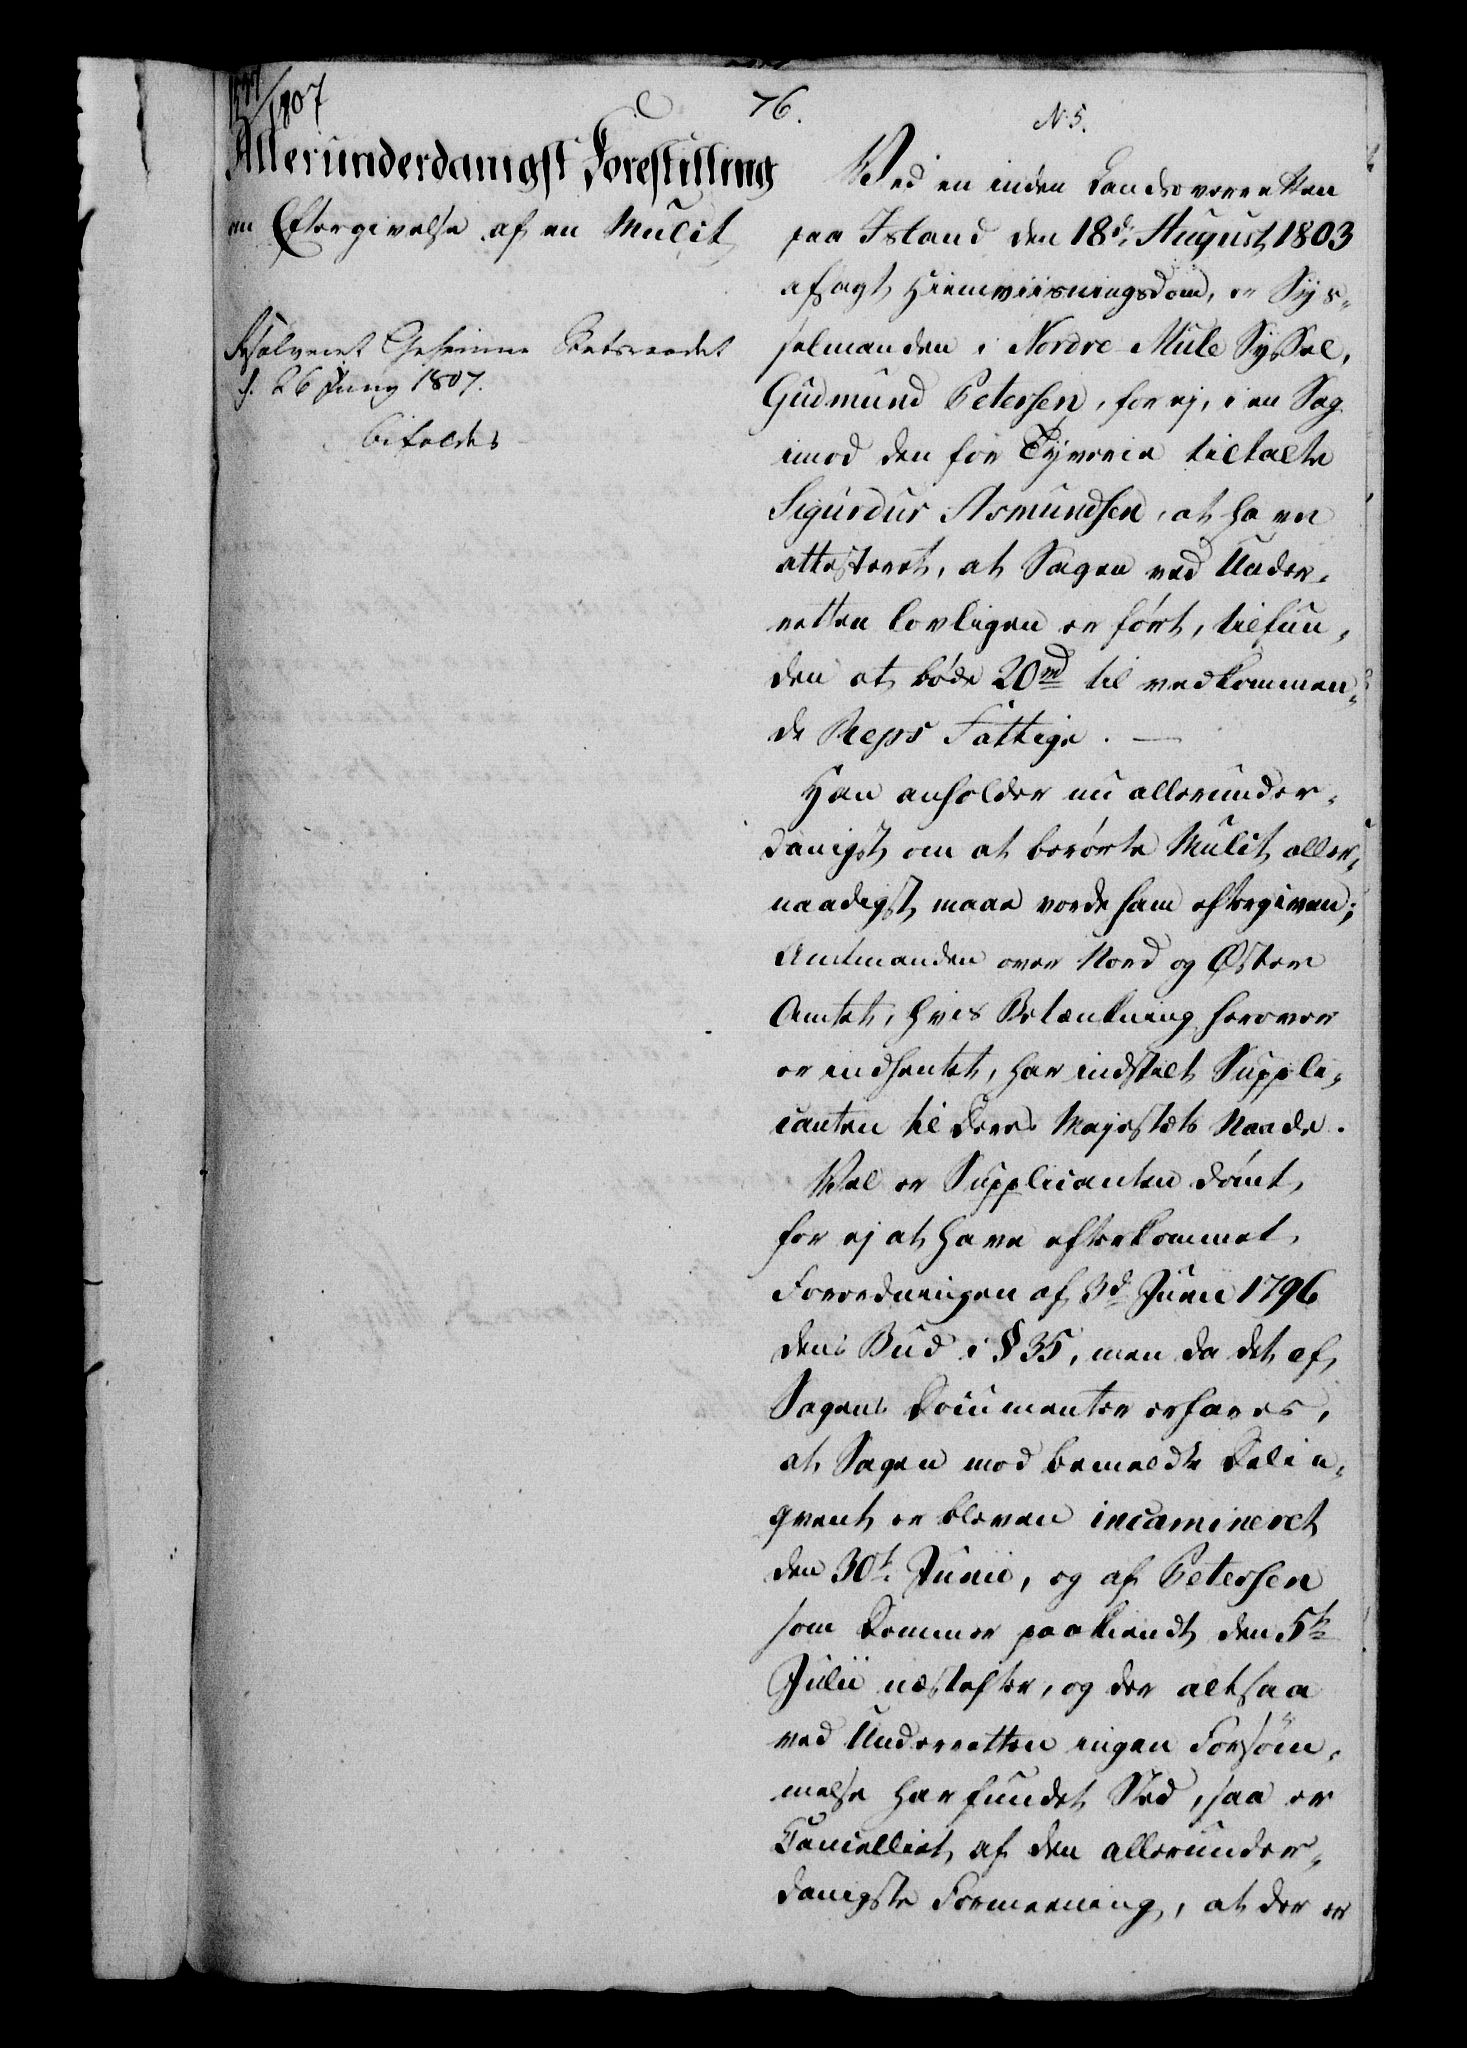 1807
76.
N. 5.
Allerunderdanigst Forestilling
om Eftergivelse af en Mulct
Resolveret Geheime Statsraadet
d. 26 Juny 1807.
bifaldes
Ved en inden Landsoverretten
paa Island den 18de August 1803
afsagt Hiemviisningsdom, er Sys-
selmanden i Nordre Mule Syssel,
Gudmund Petersen, for ej, i en Sag
imod den for Tyverie tiltalte
Sigurdur Asmundsen, at have
attesteret, at Sagen ved Under-
retten lovligen er ført, tilfun-
den at bøde 20 rd til vedkommen-
de Reps Fattige. —
Han anholder nu allerunder-
danigst om at berørte Mulct aller-
naadigst maae vorde ham eftergiven;
Amtmanden over Nord og Øster
Amtet, hvis Betænkning herover
er indhentet, har indstilt Suppli-
canten til Deres Majestæts Naade.
Vel er Supplicanten dømt,
for ej at have efterkommet
Forordningen af 3d Junii 1796
dens Bud i § 35, men da det af
Sagens Documenter erfares,
at Sagen mod bemeldte Delin-
qvent er bleven incamineret
den 30te Junii, og af Petersen
som Dommer paakiendt den 5te
Julii næstefter, og der altsaa
ved Underretten ingen Forsøm-
melse har fundet Sted, saa er
Cancelliet af den allerunder-
danigste Formeening, at der er